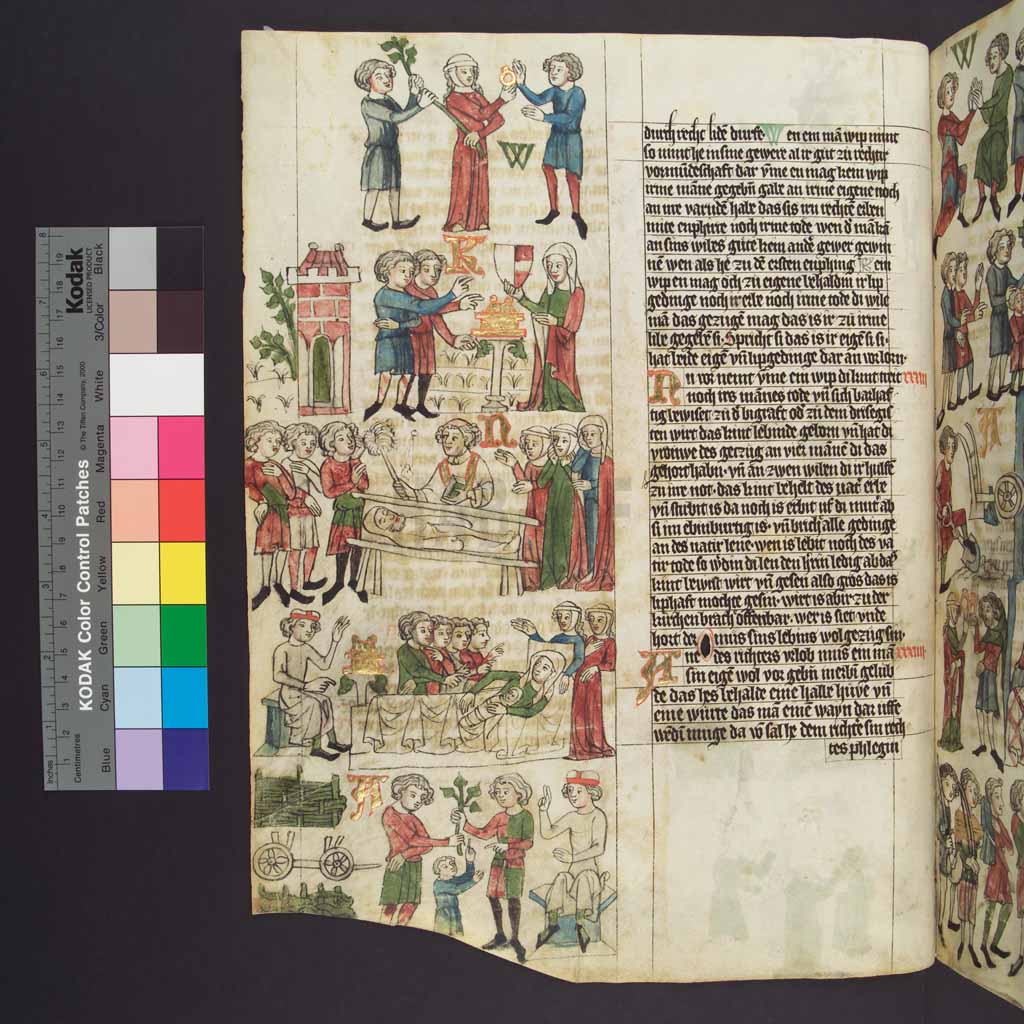 KODAK Color Control Patches
© The Tiffen Company, 2000
Kodak
LICENSED PRODUCT
Inches
Centimetres
Blue
Cyan
Green
Yellow
Red
Magenta
White
3/Color
Black
W
K
N
A
durch recht lide durfe W en ein mā wip nimt
so nimt he in sine gewere al ir gut zu rechtir
vormūdeschaft dar ūme en mag kein wip
irme māne gegebin gabe an irme eigene noch
an ire varnde habe das sis irn rechtē erben
mite enphirre noch irme tode wen d mā kā
an sins wibes gute kein andē gewer gewin
nē wen als he zu dē ersten enphing K ein
wip en mag och zu eigene behaldin ir lip
gedinge noch ir erbe noch irme tode di wile
mā das gezugē mag das is ir zu irme
libe gegebē si. Spricht si das is ir eigē si. si
hat beide eigē vn̄ lipgedinge dar an vorlorn
N u vor nemt ūme ein wip di kint treit
noch irs mānes tode vn̄ sich barhaf
tig bewiset zu d bigraft od zu dem drisegis
ten wirt das kint lebinde geborn vn̄ hat di
vrouwe des gezug an vier mānē di das
gehort habn. vn̄ an zwen wiben di ir hulfē
zu irre not. das kint behelt des vatˀ erbe
vn̄ stirbit is da noch is erbit uf di mutˀ ab
si im ebinburtig is. vn̄ bricht alle gedinge
an des vatir lene. wen is lebit noch des va
tir tode so wdin di len den hˀrn ledig ab das
kint bewist wirt vn̄ gesen also gros das is
liphaft mochte gesin. wirt is abir zu der
kirchen bracht offenbar. wer is siet unde
hort der mus sins lebins wol gezug sin.
A ne des richters urlob mus ein mā
sin eigē wol vor gebin mitibē gelub
de das hes behalde eine halbe huve vn̄
eine wurte das mā einē wayn dar uffe
wēdin muge da vō sal he dem richtˀe sin rech
tes phlegin
W
A